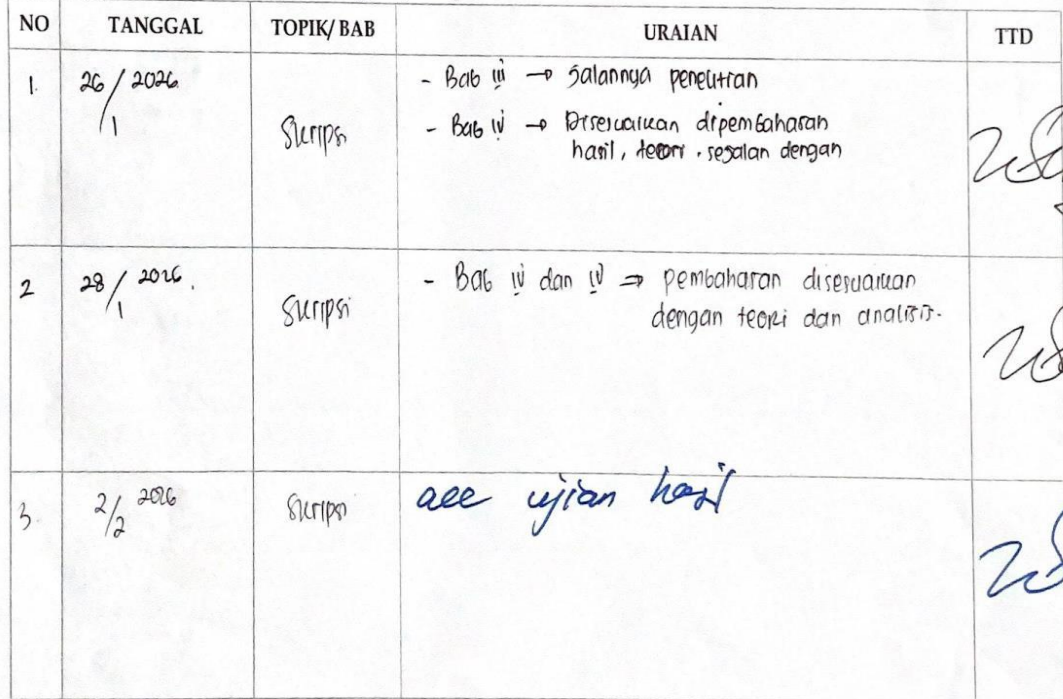 NO TANGGAL TOPIK/BAB URAIAN TTD
1. 26/1 2026. Skripsi - Bab iii → Jalannya penelitian
- Bab iv → Disesuaikan dipembahasan
hasil, teori, sejalan dengan
2 28/1 2026. Skripsi - Bab iv dan iv ⇒ pembahasan disesuaikan
dengan teori dan analisis.
3. 2/2 2026 Skripsi acc ujian hasil